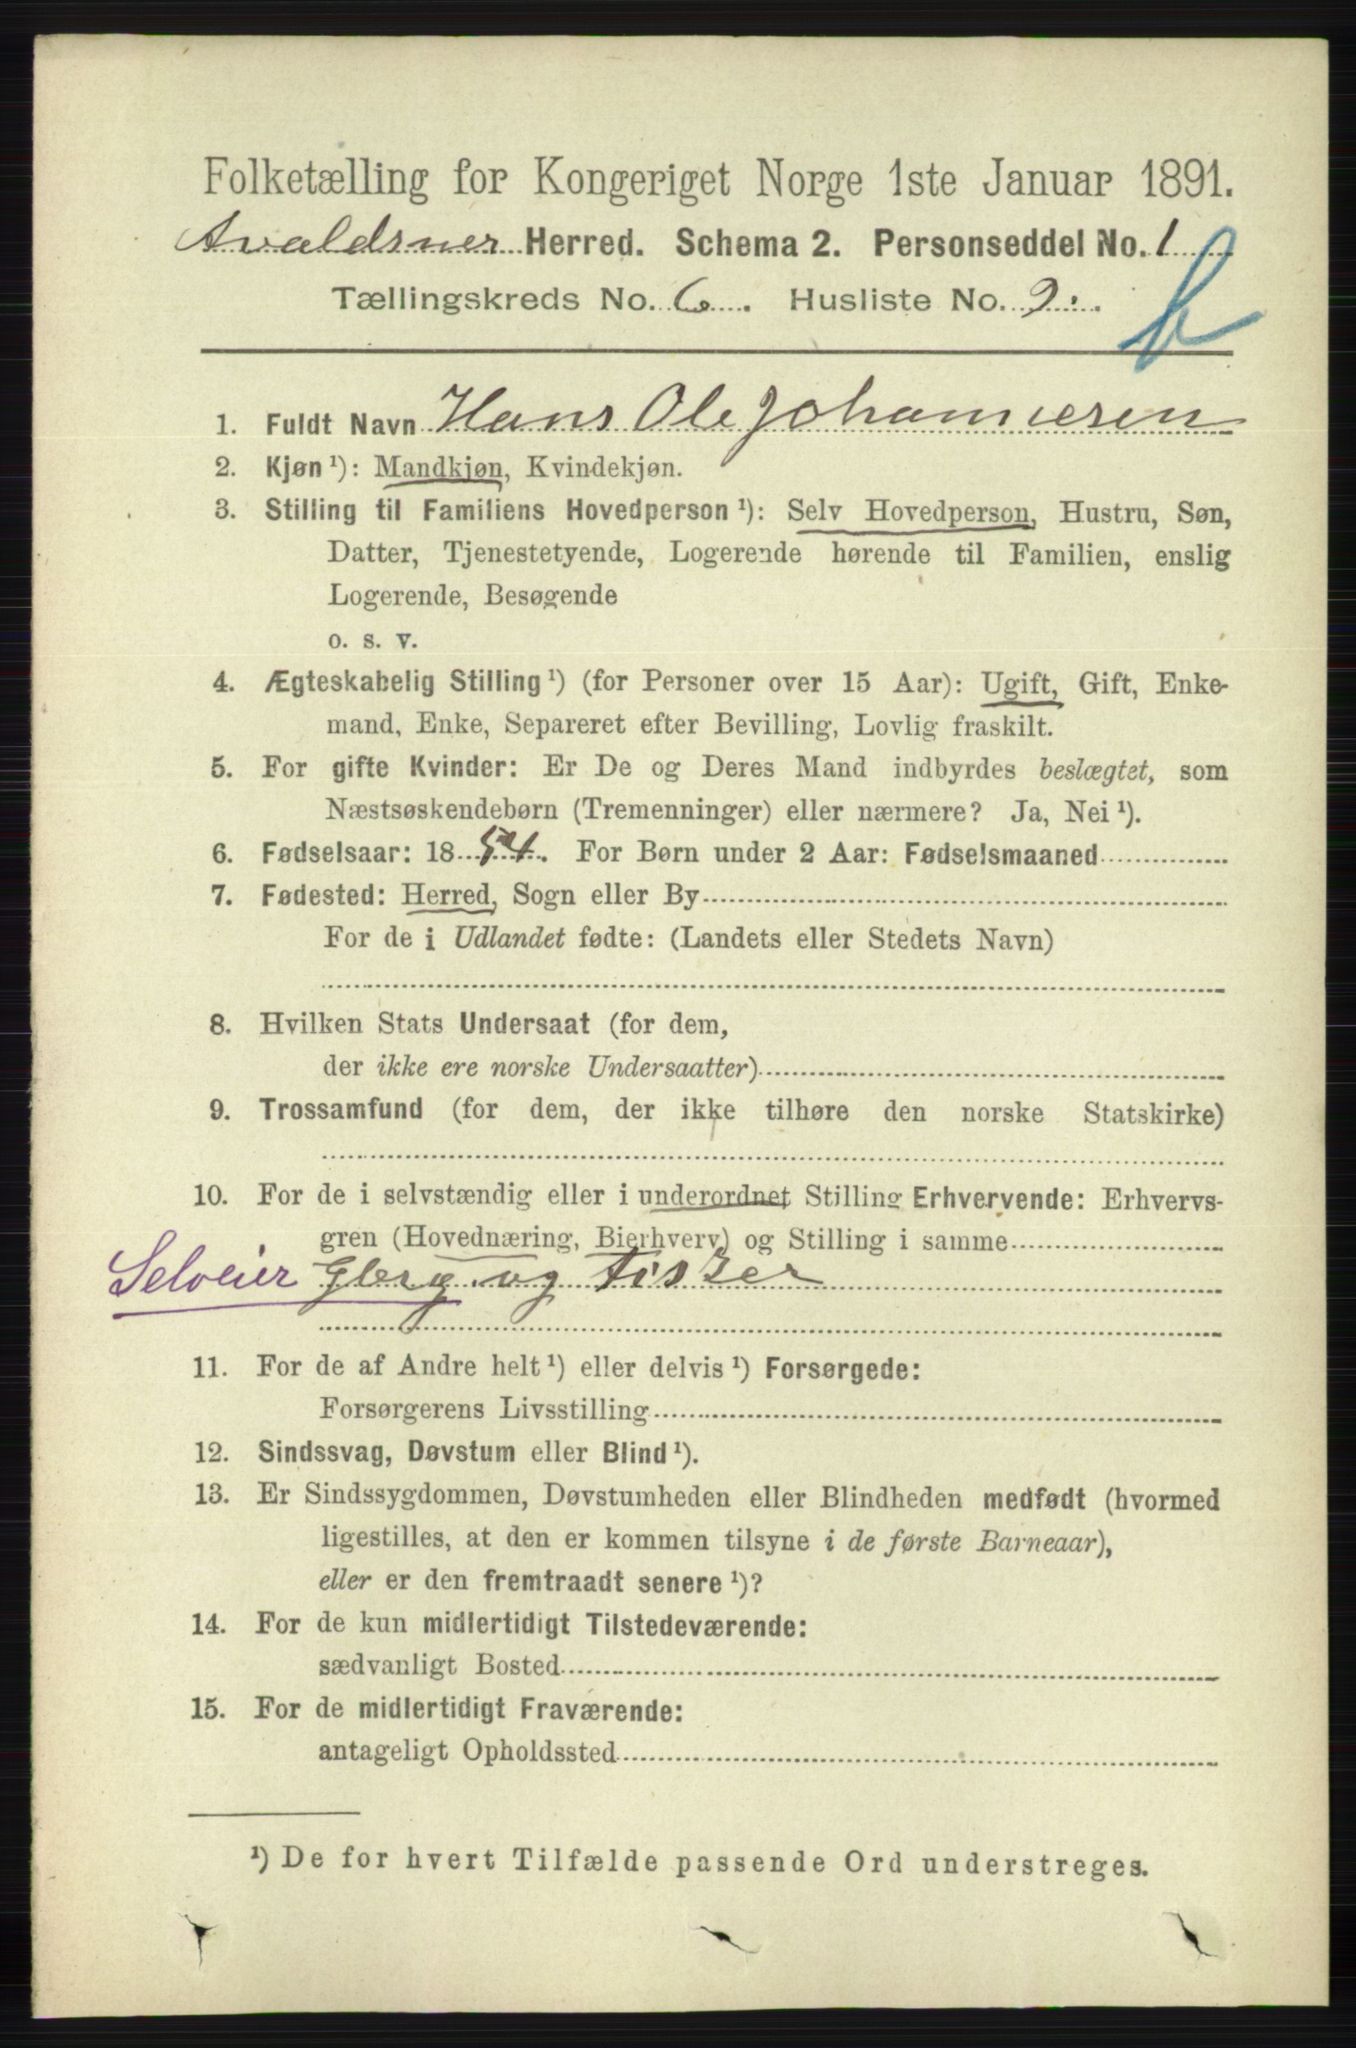 Folketælling for Kongeriget Norge 1ste Januar 1891.
Avaldsnes Herred. Schema 2. Personseddel No. 1
Tællingskreds No. 6. Husliste No. 9.
b
1. Fuldt Navn Hans Ole Johannesen
2. Kjøn ¹): Mandkjøn, Kvindekjøn.
3. Stilling til Familiens Hovedperson ¹): Selv Hovedperson, Hustru, Søn,
Datter, Tjenestetyende, Logerende hørende til Familien, enslig
Logerende, Besøgende
o. s. v.
4. Ægteskabelig Stilling ¹) (for Personer over 15 Aar): Ugift, Gift, Enke-
mand, Enke, Separeret efter Bevilling, Lovlig fraskilt.
5. For gifte Kvinder: Er De og Deres Mand indbyrdes beslægtet, som
Næstsøskendebørn (Tremenninger) eller nærmere? Ja, Nei ¹).
6. Fødselsaar: 1854. For Børn under 2 Aar: Fødselsmaaned
7. Fødested: Herred, Sogn eller By
For de i Udlandet fødte: (Landets eller Stedets Navn)
8. Hvilken Stats Undersaat (for dem,
der ikke ere norske Undersaatter)
9. Trossamfund (for dem, der ikke tilhøre den norske Statskirke)
10. For de i selvstændig eller i underordnet Stilling Erhvervende: Erhvervs-
gren (Hovednæring, Bierhverv) og Stilling i samme
Selveier Gbrg. og Fisker
11. For de af Andre helt ¹) eller delvis ¹) Forsørgede:
Forsørgerens Livsstilling
12. Sindssvag, Døvstum eller Blind ¹).
13. Er Sindssygdommen, Døvstumheden eller Blindheden medfødt (hvormed
ligestilles, at den er kommen tilsyne i de første Barneaar),
eller er den fremtraadt senere ¹)?
14. For de kun midlertidigt Tilstedeværende:
sædvanligt Bosted
15. For de midlertidigt Fraværende:
antageligt Opholdssted
¹) De for hvert Tilfælde passende Ord understreges.